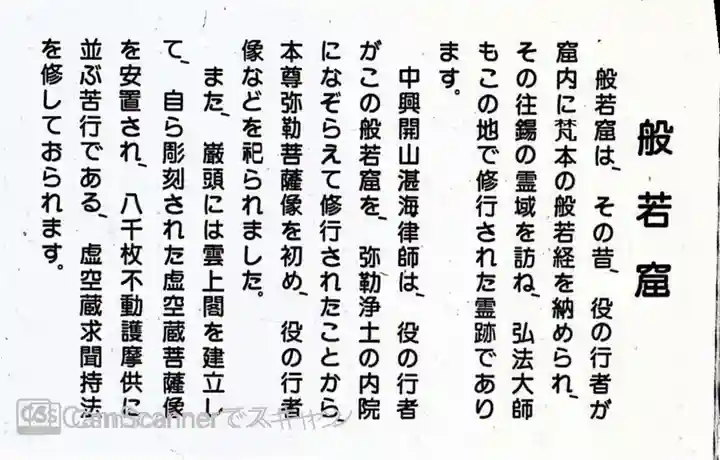 般若窟
般若窟は、その昔、役の行者が
窟内に梵本の般若経を納められ、
その往鍚の霊域を訪ね、弘法大師
もこの地で修行された霊跡であり
ます。
中興開山湛海律師は、役の行者
がこの般若窟を、弥勒浄土の内院
になぞらえて修行されたことから、
本尊弥勒菩薩像を初め、役の行者
像などを祀られました。
また、巌頭には雲上閣を建立し
て、自ら彫刻された虚空蔵菩薩像
を安置され、八千枚不動護摩供に
並ぶ苦行である、虚空蔵求聞持法
を修しておられます。
CS CamScannerでスキャン